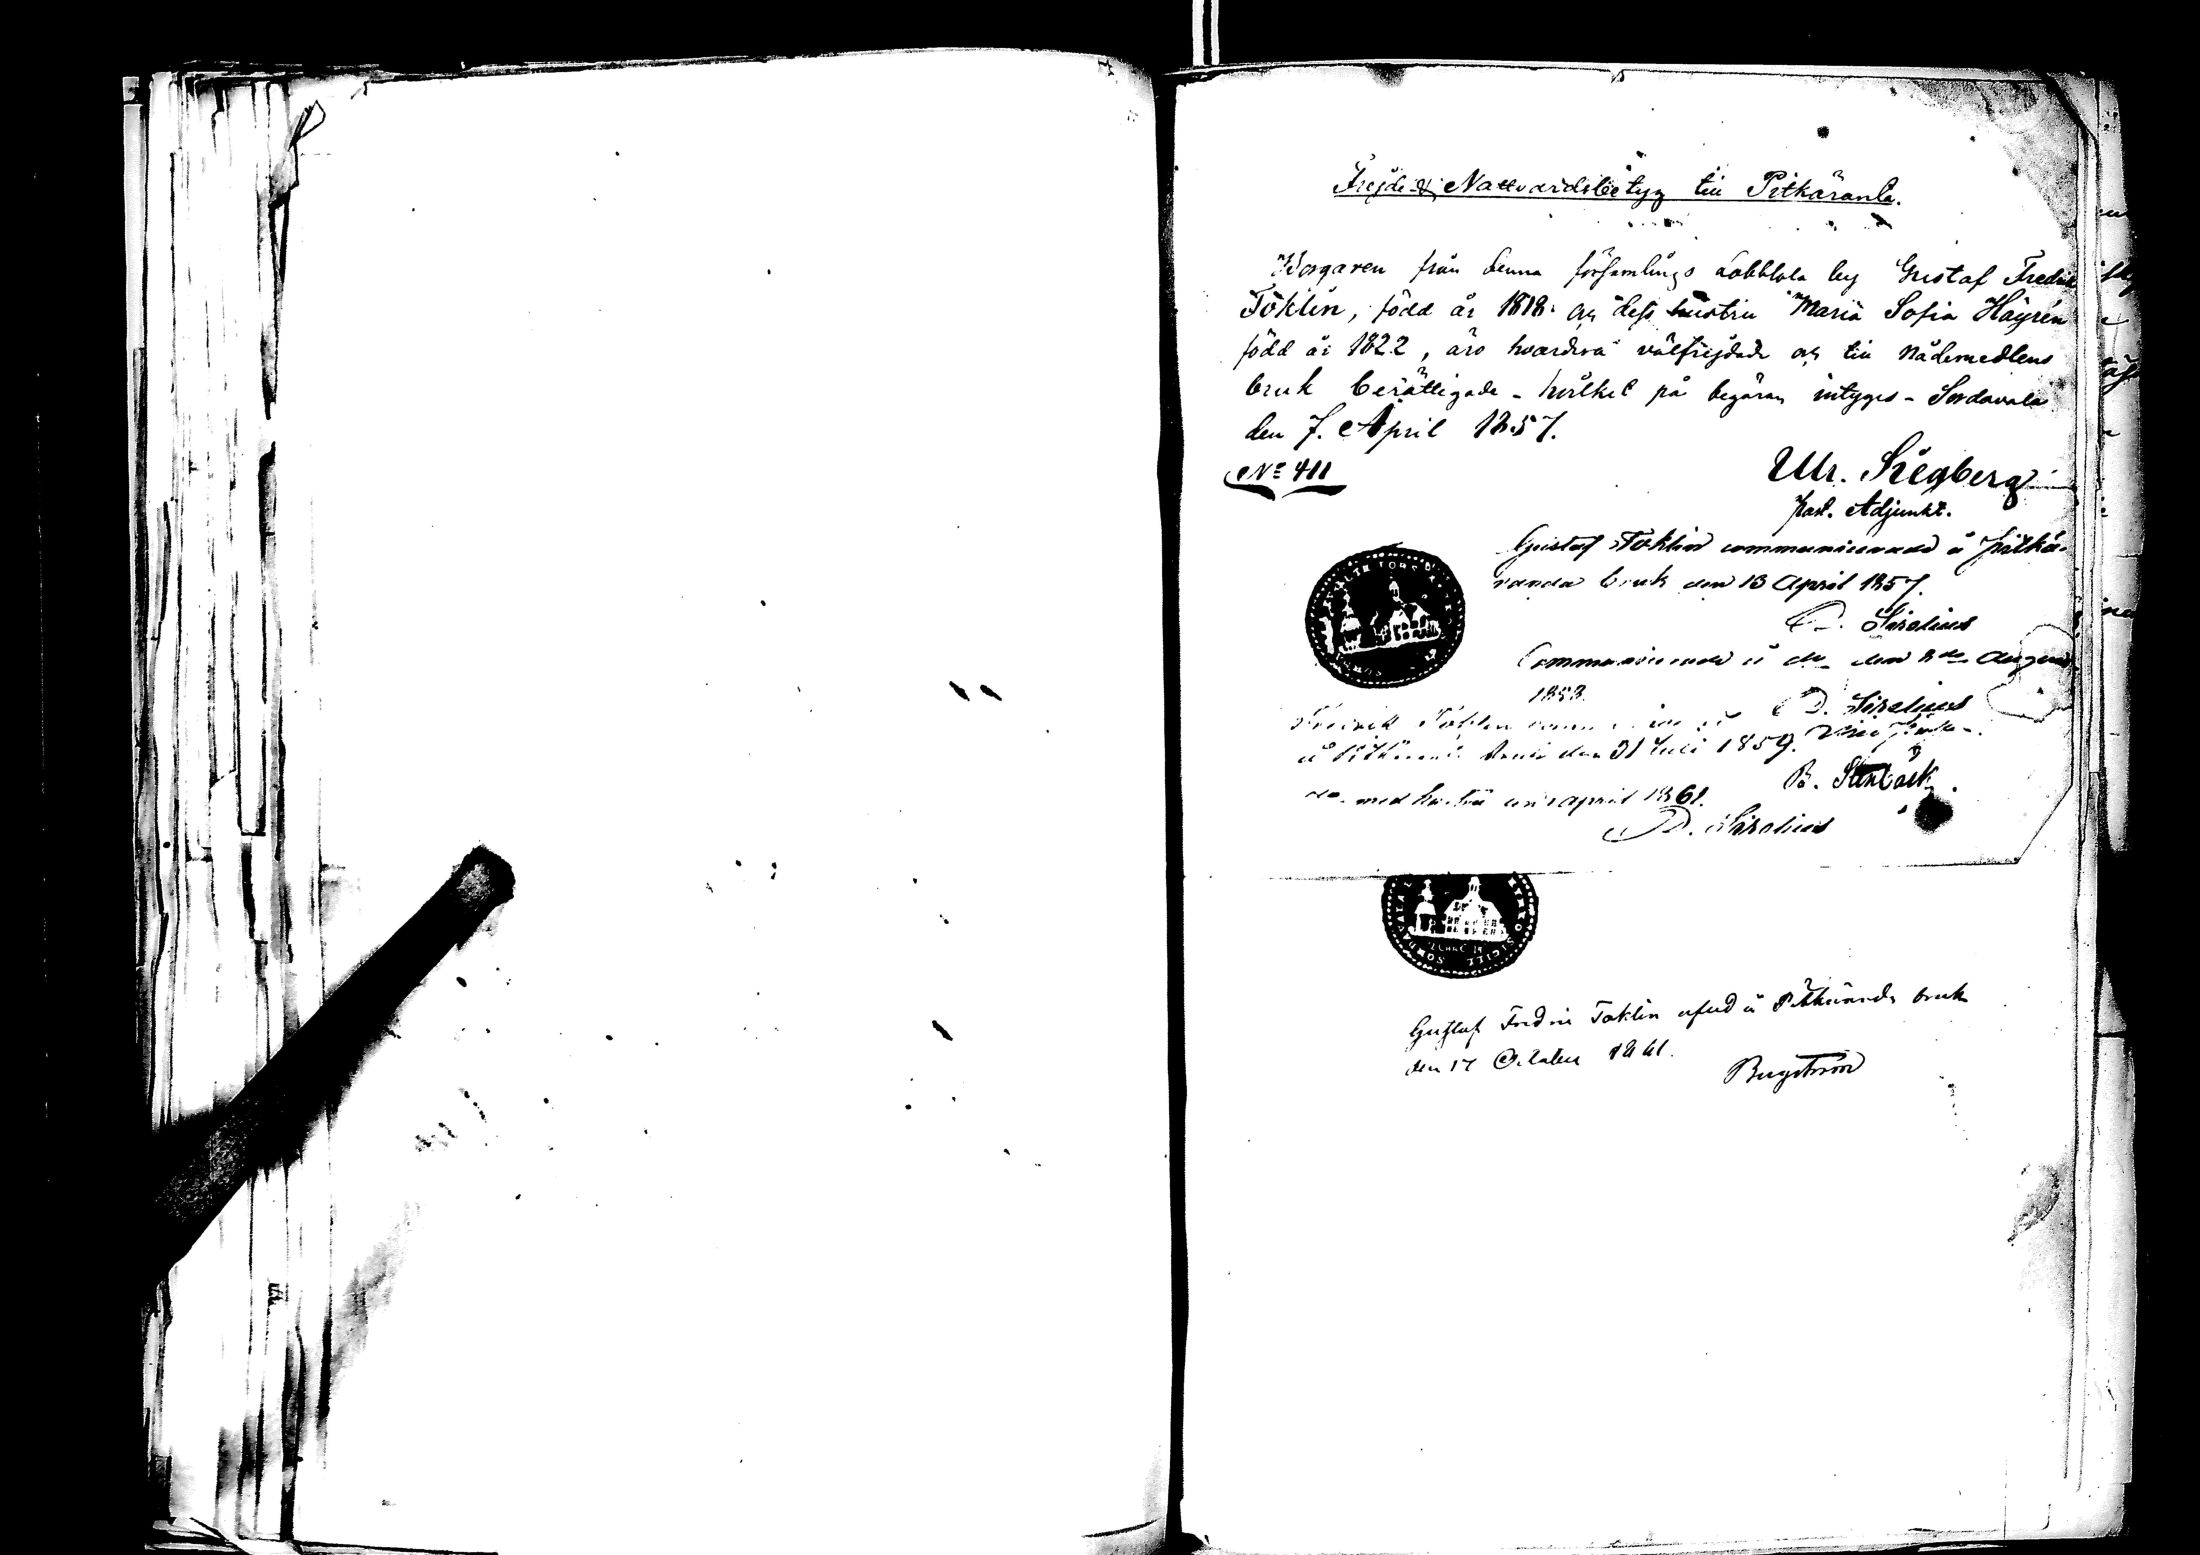 Frejde & Nattvardsbetyg till Pitkäranta.
Borgaren från denna församlings by Gustaf Fredrik
Töklin, född år 1818 och dess hustru Maria Sofia Häyrén
född år 1822, äro hvardera välfrejdade och till nådemedlens
bruk berättigade - hvilket på begäran intygas - Sordavala
den 7. April 1857.
No 411
Ulr. Siegberg
past. Adjunkt.
Gustaf Töklin communicerade å Pitkä-
randa bruk den 13 April 1857.
D. Sirelius
Communicerade å do den
1858.
D. Sirelius
Fredrik
å bruk den 31 Juli 1859.
B. Stenbäck
do med hustru april 1861.
D. Sirelius
Gustaf Fredric Toklin afled å Pitkäranda bruk
den 17 October 1861.
Bergström